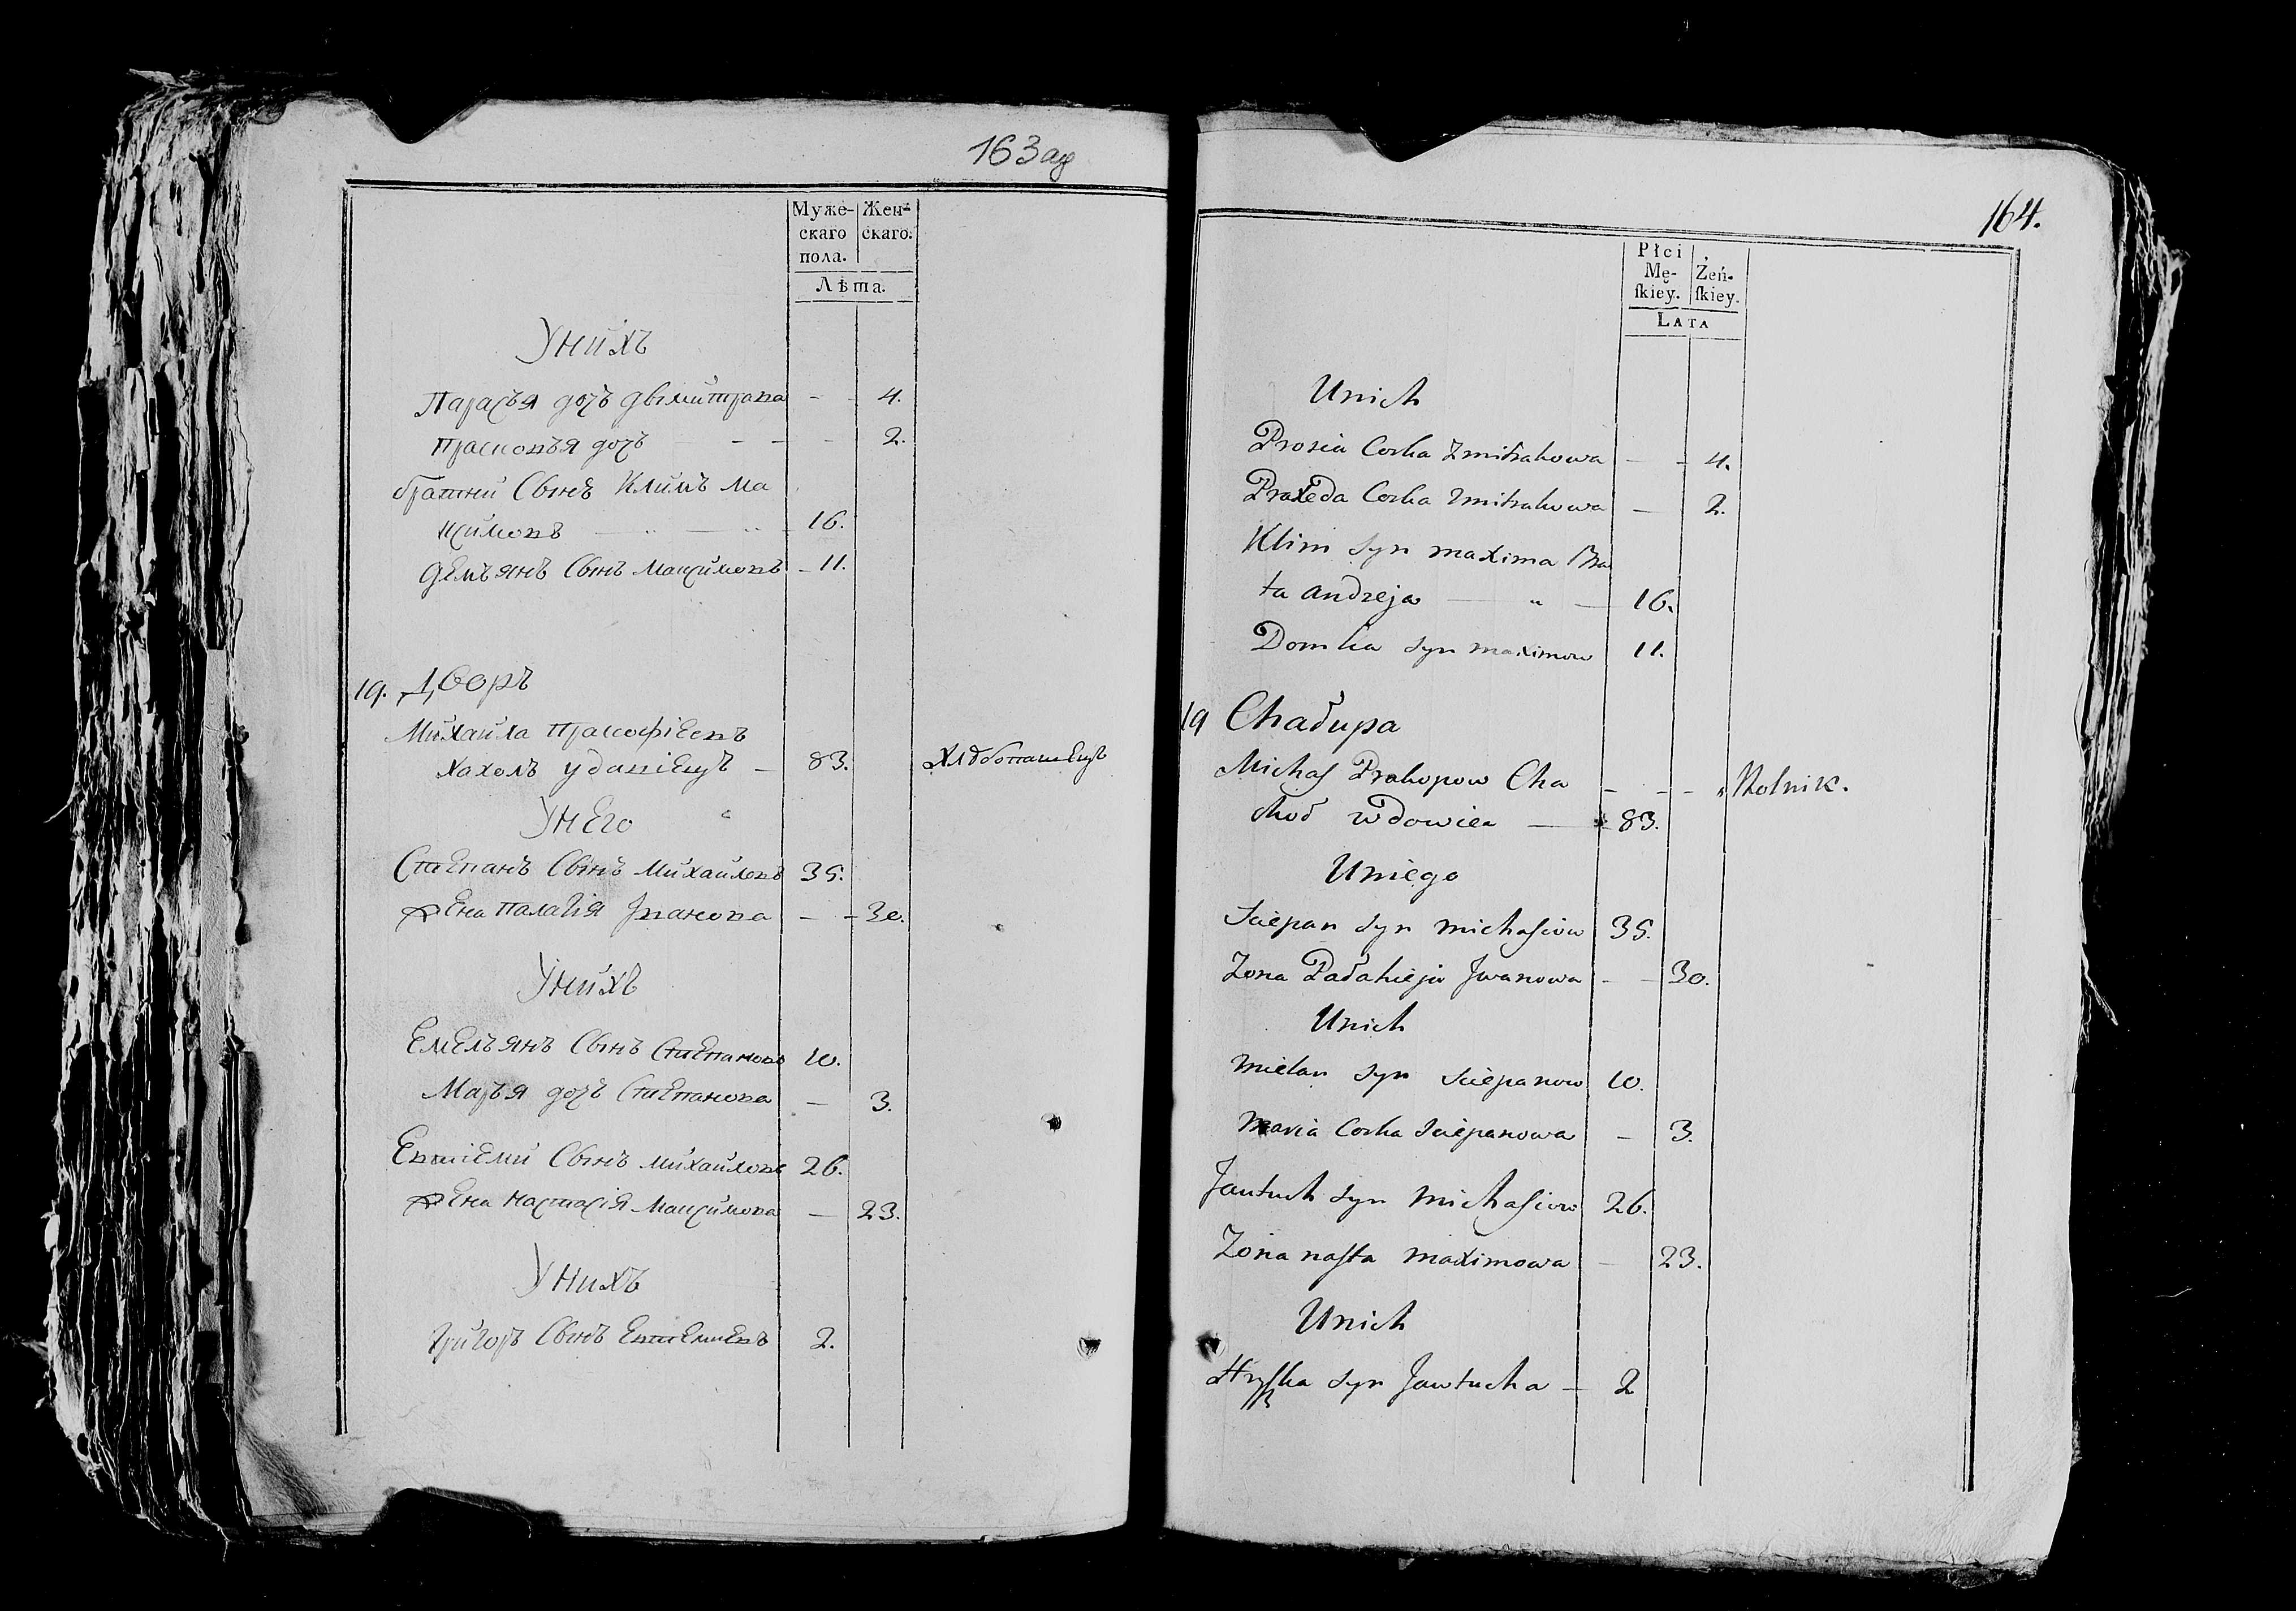 163 ад
Муже-
скаго
пола.
Жен-
скаго.
Лѣта.
У нихъ
Парасья дочь дымитрава - - 4.
Прасковья дочь - - - 2.
братни Сынъ Климъ Ма
ксимовъ 16.
Демьянъ Сынъ Максимовъ - 11.
19. Дворъ
Михайла Пракофіевъ
Хахолъ удавіецъ - 83. Хлѣбопашецъ
У него
Степанъ Сынъ Михайловъ 35.
жена Палагія Іванова - - 30.
У нихъ
Емельянъ Сынъ Степановъ 10.
Марья дочь Степанова - 3.
Евтіеми Сынъ Михайловъ 26.
жена Настасія Максимова - 23.
У нихъ
Григоръ Сынъ Евтемиевъ 2.
164.
Płci
Mę-
ſkiey.
Żeń-
ſkiey.
LATA
Unich
Prosia Corka Zmitrakowa - - 4.
Praxeda Corka Zmitrakowa - 2.
Klim Syn maxima Bra
ta andzeja - " - 16.
Domka syn maximow 11.
19 Chałupa
Michaſ Prokopow Cha - - - Rolnik.
choł wdowiec - 83.
Uniego
Sciepan syn michaſiow 35.
Zona Pałahieja Jwanowa - - 30.
Unich
mielan syn Sciepanow 10.
maria Corka Sciepanowa - 3.
Jautuch syn michaſiow 26.
Zona naſta maximowa - 23.
Unich
Hryſka syn Jawtucha - 2